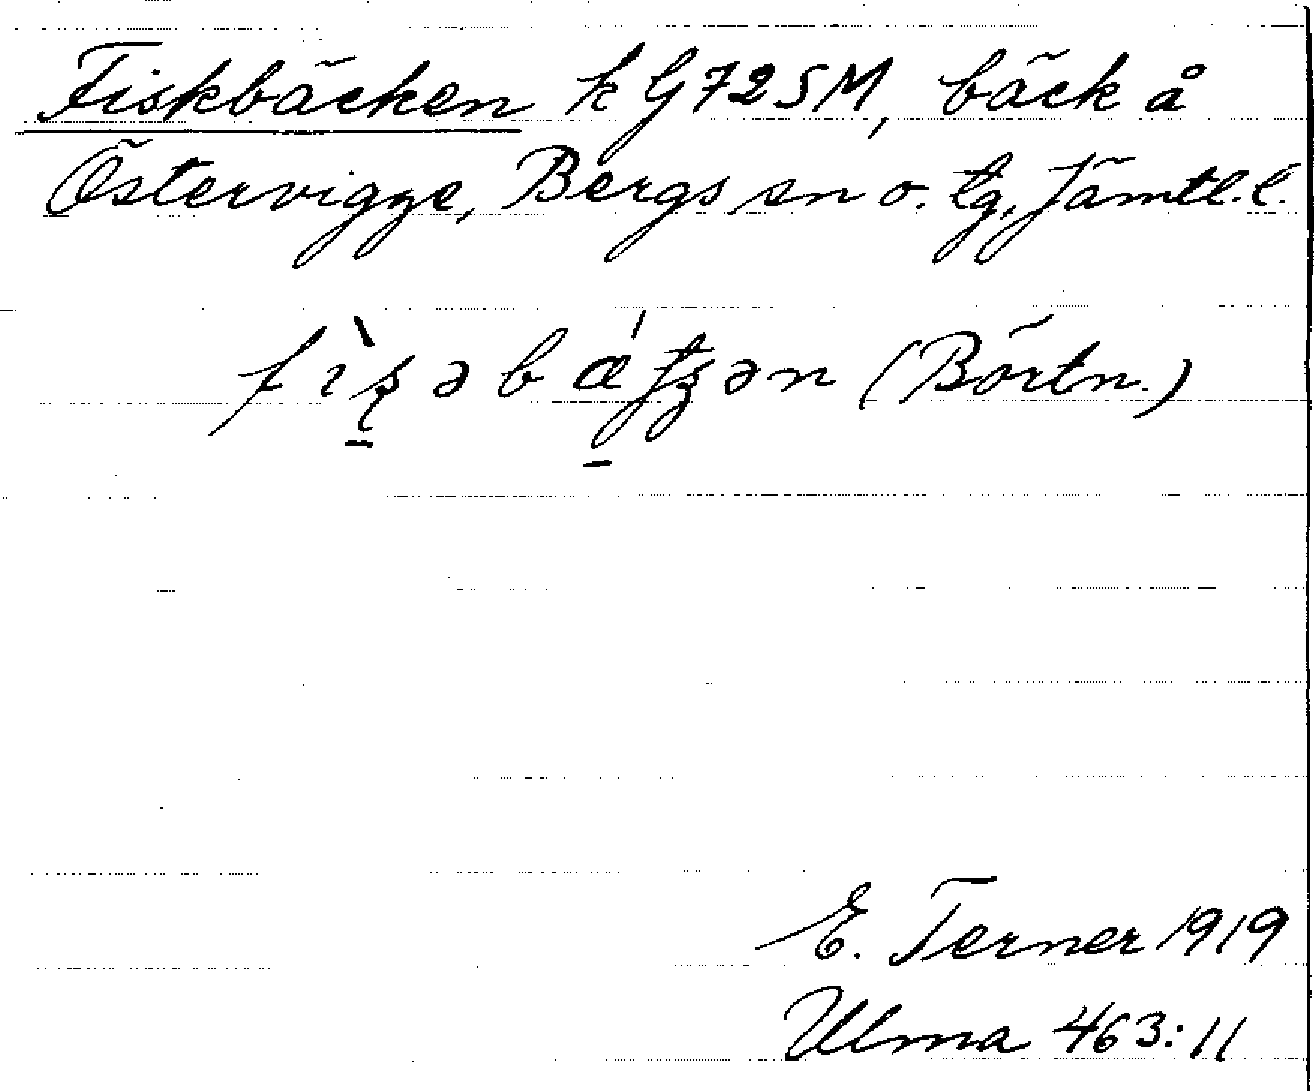 Fiskbäcken k G72SM, bäck å
Östervigge, Bergs sn o. tg, Jämtl.l.
(Börtn.)
E. Terner 1919
Ulma 463:11